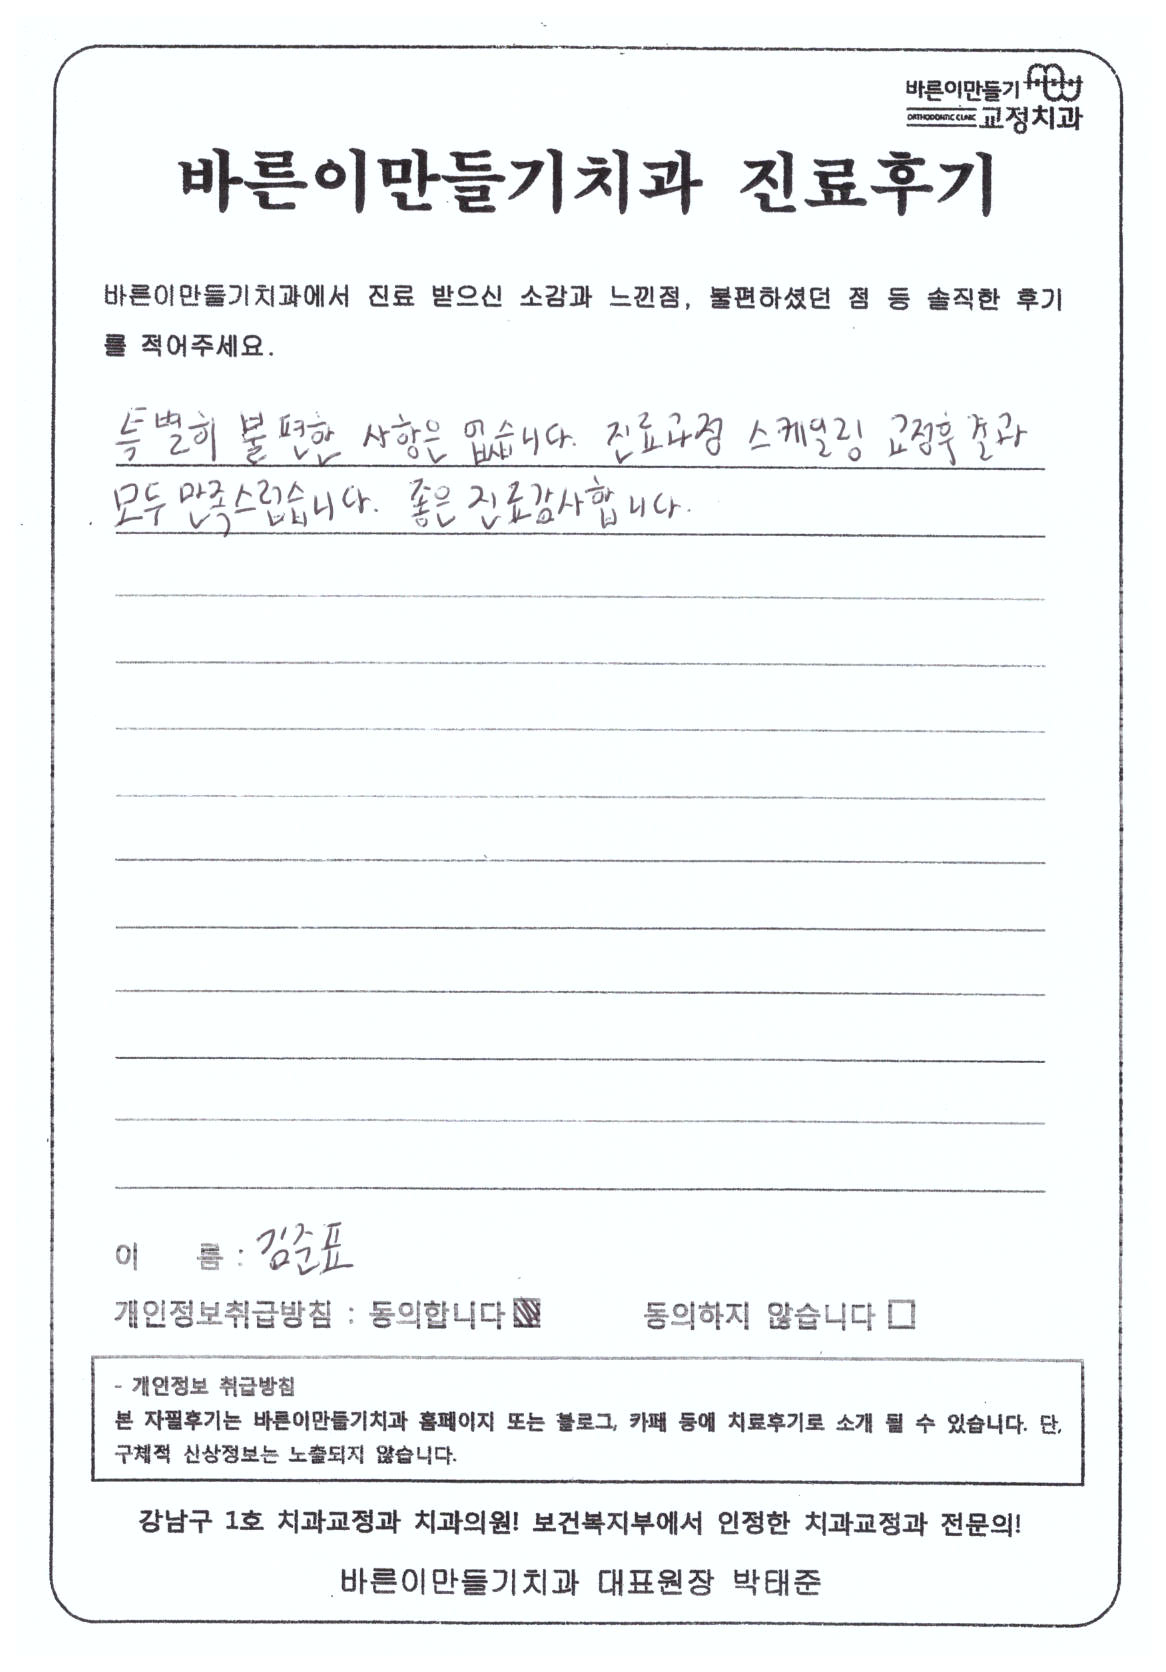 바른이만들기
ORTHODONTIC CLINIC 교정치과
바른이만들기치과 진료후기
바른이만들기치과에서 진료 받으신 소감과 느낀점, 불편하셨던 점 등 솔직한 후기
를 적어주세요.
특별히 불편한 사항은 없습니다. 진료과정 스케일링 교정후 결과
모두 만족스럽습니다. 좋은 진료감사합니다.
이 름 : 김준표
개인정보취급방침 : 동의합니다 동의하지 않습니다
- 개인정보 취급방침
본 자필후기는 바른이만들기치과 홈페이지 또는 블로그, 카페 등에 치료후기로 소개 될 수 있습니다. 단,
구체적 신상정보는 노출되지 않습니다.
강남구 1호 치과교정과 치과의원! 보건복지부에서 인정한 치과교정과 전문의!
바른이만들기치과 대표원장 박태준